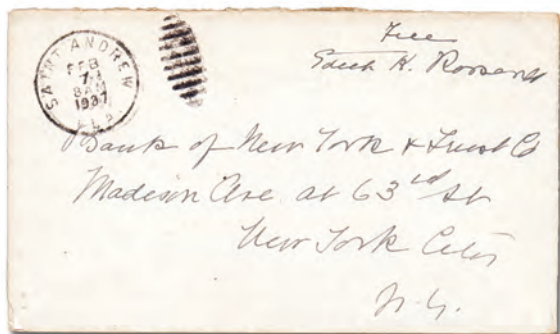 SAINT ANDREW
FEB
8 AM
1937
FLA.
Free
Edith K. Roosevelt
Bank of New York & Trust Co
Madison Ave at 63rd St
New York City
N.Y.